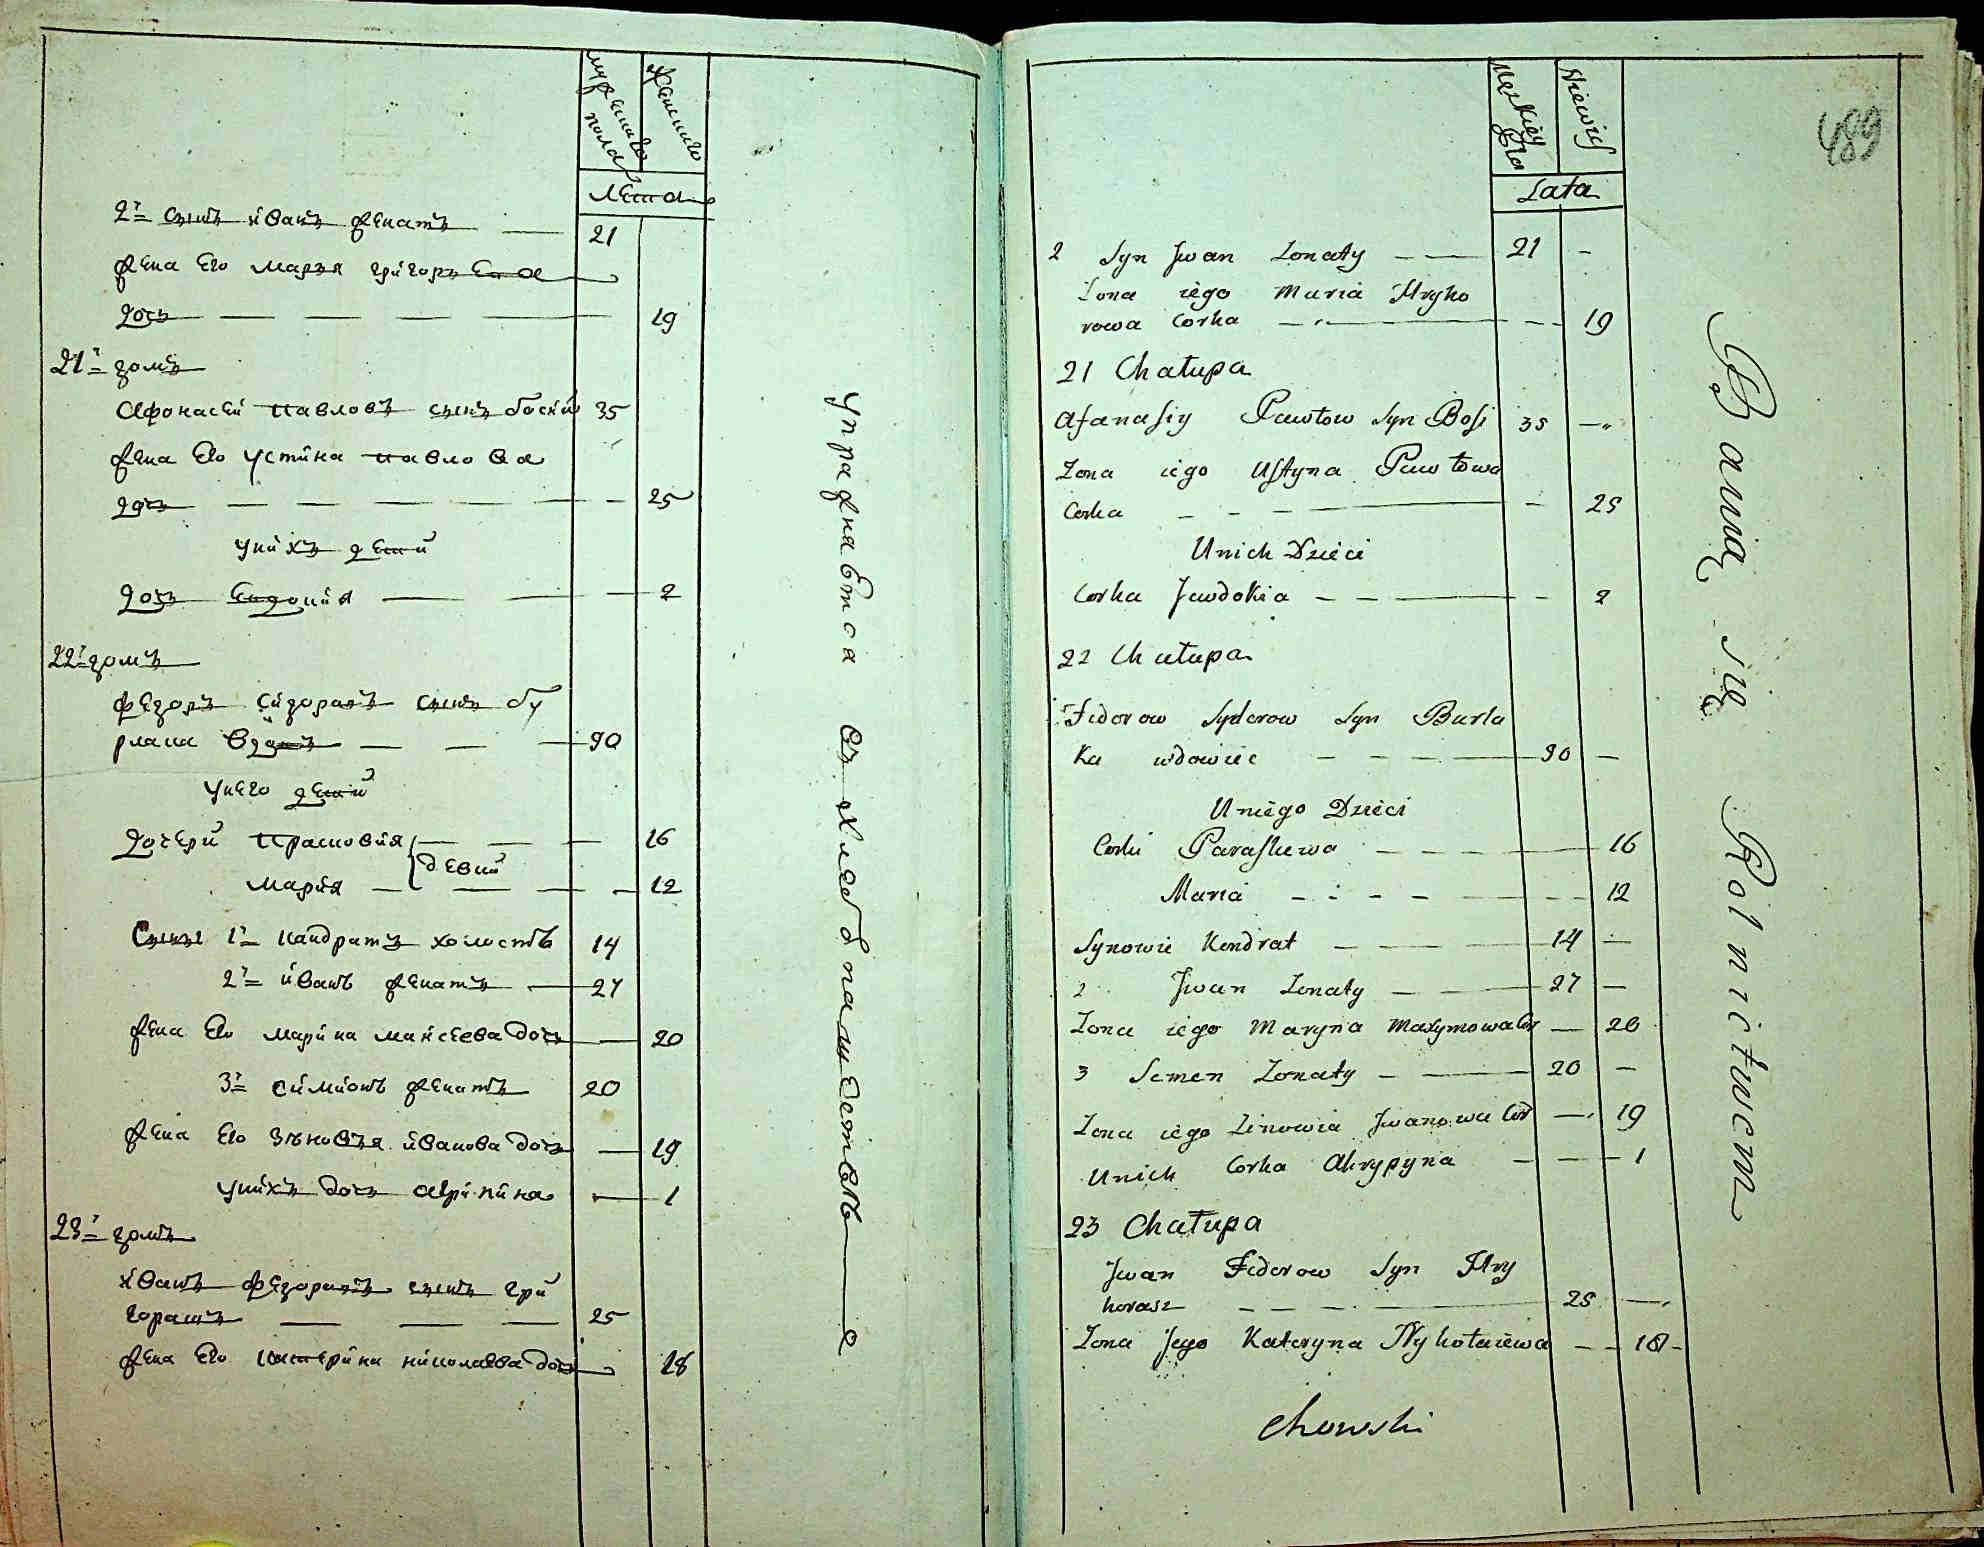 мужеска пола
женскаго
лета
2й сынъ иванъ женатъ — 21
жена его марья григорьева
дочь — — — — 19
21й домъ
афонасеи павловъ сынъ босии 35
жена его устина павлова
дочь — — — — 25
у них детеи
дочь евдокия — — 2
22й домъ
федоръ сидоравъ сынъ бу
рлака вдовъ — — — 90
у него детеи
дочери прасковия — — — 16
девки
мария — — — 12
Сыны 1й кандратъ холостъ 14
2й иванъ женатъ — 27
жена его марина маисеева дочь — 20
3й симионъ женатъ 20
жена его зеновья иванова дочь — 19
у них дочь агрипина — 1
23й домъ
иванъ федоравъ сынъ гри
горашъ — — — 25
жена его катерина николаева дочь — 18
упражнаются в хлебопашестве
489
Męzkiey Płci
Niewies
Lata
2 Syn Jwan Zonaty — — 21 –
Zona iego Maria Hryho
rowa Corka — — — 19
21 Chałupa
Afanasiy Pawłow Syn Bosi 35 —
Zona iego Ustyna Pawłowa
Corka – – – — – 25
Unich Dzieci
Corka Jewdokia – – — – 2
22 Chałupa
Fedorow Syderow Syn Burła
ka wdowiec – – – — 90 —
Uniego Dzieci
Corki Paraskewa – – – — 16
Maria – – – – — 12
Synowie Kondrat — — — 14 —
2 Jwan Zonaty — — — 27 —
Zona iego Maryna Maxymowa Cor — 20
3 Semen Zonaty – — 20 —
Zona iego Zinowia Jwanowa Cor — 19
Unich Corka Ahrypyna – — — 1
23 Chałupa
Jwan Fedorow Syn Hry
horasz – – – – — 25 —
Zona Jego Kateryna Mykołaiewa – – 18 –
Bawią się Rolnictwem
chowski